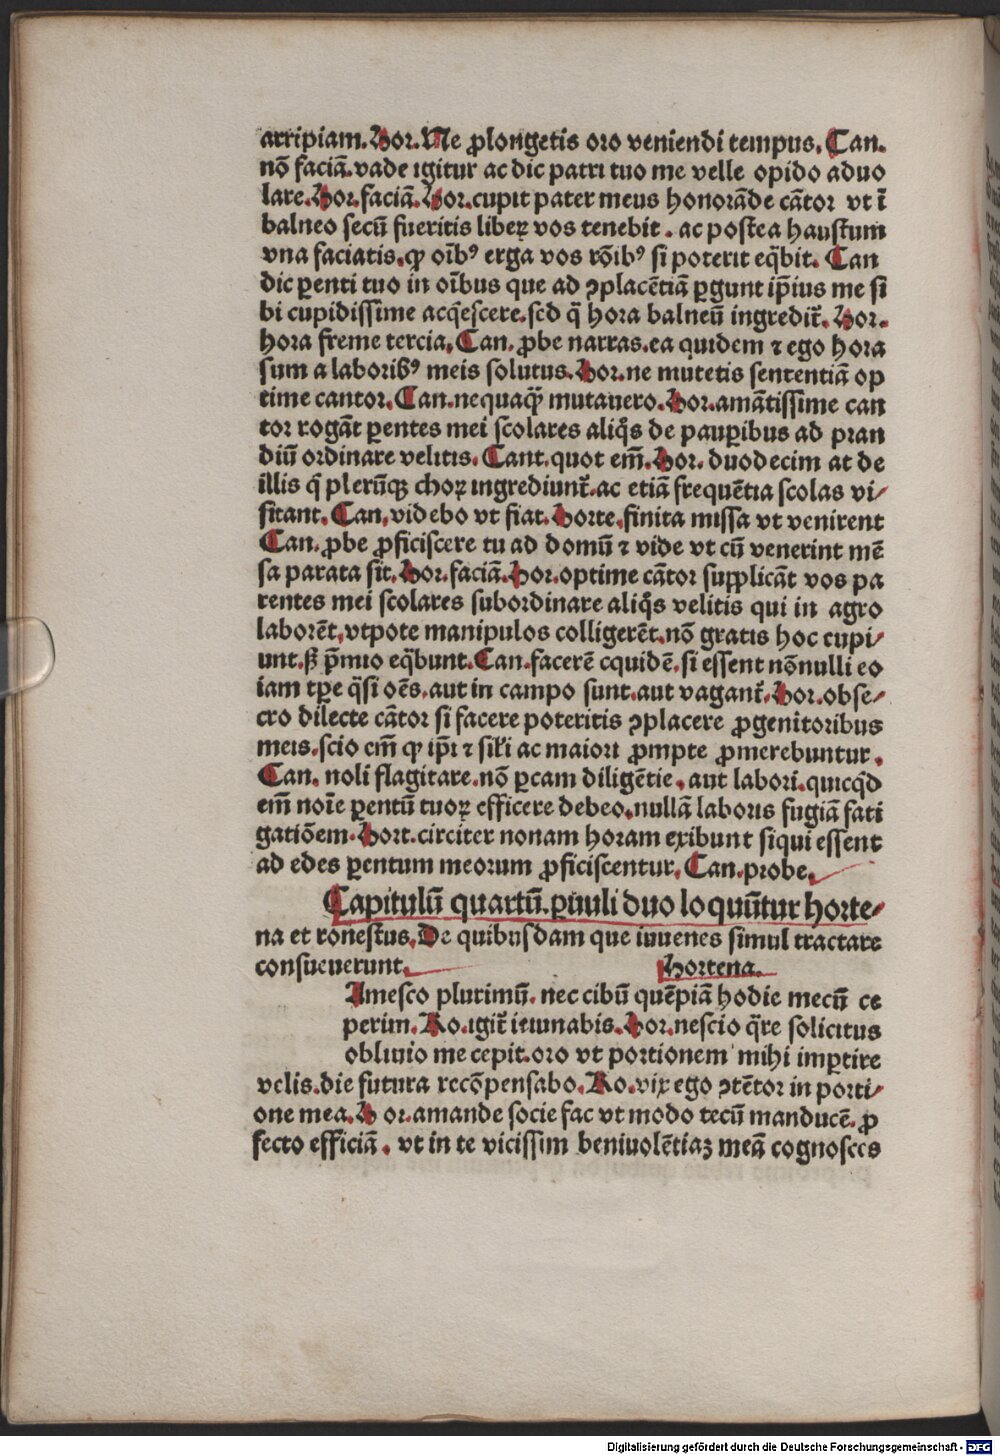 arripiam. Hor. Me ꝓlongetis oro veniendi tempus. Can.
nō faciā. vade igitur ac dic patri tuo me velle opido aduo
lare. Hor. faciā. Hor. cupit pater meus honorāde cātor vt ī
balneo secū fueritis libeꝝ vos tenebit. ac postea haustum
vna faciatis. ꝙ oīb⁹ erga vos rōib⁹ si poterit eq̄bit. Can
dic ꝑenti tuo in oībus que ad ꝯplacētiā ꝑgunt ip̄ius me si
bi cupidissime acq̄escere. sed q̄ hora balneū ingredit̄. Hor.
hora freme tercia. Can. ꝓbe narras. ea quidem ⁊ ego hora
sum a laborib⁹ meis solutus. Hor. ne mutetis sententiā op
time cantor. Can. nequaq̄ mutauero. Hor. amātissime can
tor rogāt ꝑentes mei scolares aliq̄s de pauꝑibus ad pran
diū ordinare velitis. Cant. quot em̄. Hor. duodecim at de
illis q̄ plerūqꝫ choꝝ ingrediunt̄. ac etiā frequētia scolas vi⸗
sitant. Can. videbo vt fiat. Horte. finita missa vt venirent
Can. ꝓbe ꝓficiscere tu ad domū ⁊ vide vt cū venerint mē
sa parata sit. Hor. faciā. Hor. optime cātor supplicāt vos pa
rentes mei scolares subordinare aliq̄s velitis qui in agro
laborēt. vtpote manipulos colligerēt. nō gratis hoc cupi⸗
unt. sꝫ p̄mio eq̄bunt. Can. facerē equidē. si essent nōnulli eo
iam tꝑe q̄si oēs. aut in campo sunt. aut vagant̄. Hor. obse⸗
cro dilecte cātor si facere poteritis ꝯplacere ꝓgenitoribus
meis. scio em̄ ꝙ ip̄i ⁊ sil̄i ac maiori ꝓmpte ꝓmerebuntur.
Can. noli flagitare. nō ꝑcam diligētie. aut labori. quicq̄d
em̄ noīe ꝑentū tuoꝝ efficere debeo. nullā laboris fugiā fati
gatiōem. Hort. circiter nonam horam exibunt siqui essent
ad edes ꝑentum meorum ꝓficiscentur. Can. probe.
Capitulū quartū. ꝑuuli duo loquūtur horte⸗
na et ronestus. De quibusdam que iuuenes simul tractare
consueuerunt.
Hortena.
Amesco plurimū. nec cibū quēpiā hodie mecū ce
perim. Ro. igit̄ ieiunabis. Hor. nescio q̄re solicitus
obliuio me cepit. oro vt portionem mihi imꝑtire
velis. die futura recōpensabo. Ro. vix ego ꝯtētor in porti⸗
one mea. Hor. amande socie fac vt modo tecū manducē. ꝓ
fecto efficiā. vt in te vicissim beniuolētiaꝫ meā cognosces
Digitalisierung gefördert durch die Deutsche Forschungsgemeinschaft - DFG